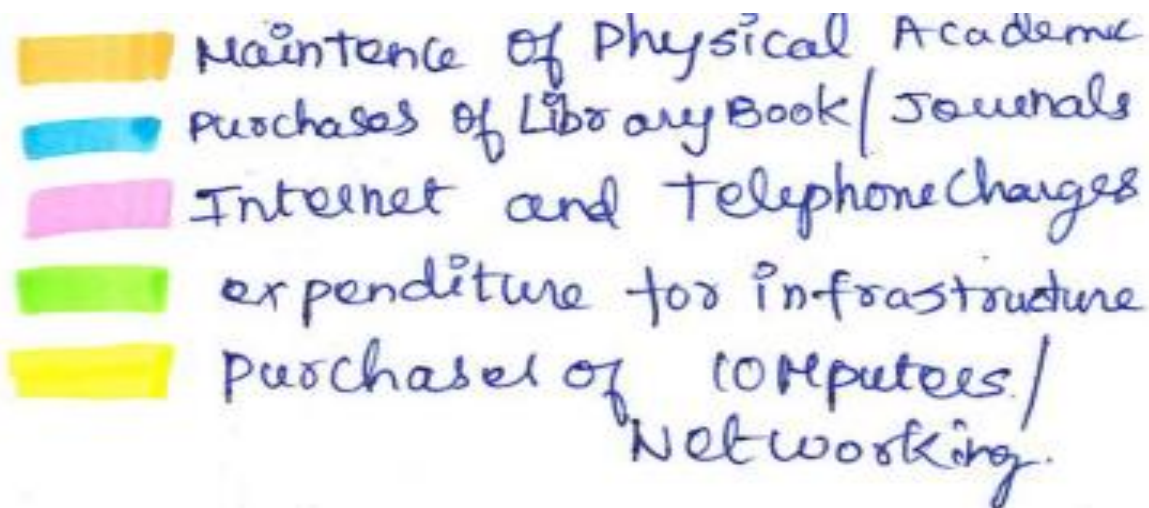 Maintence of Physical Academic
Purchases of Library Book/Journals
Internet and Telephone Charges
expenditure for infrastructure
Purchases of computers/
Networking.